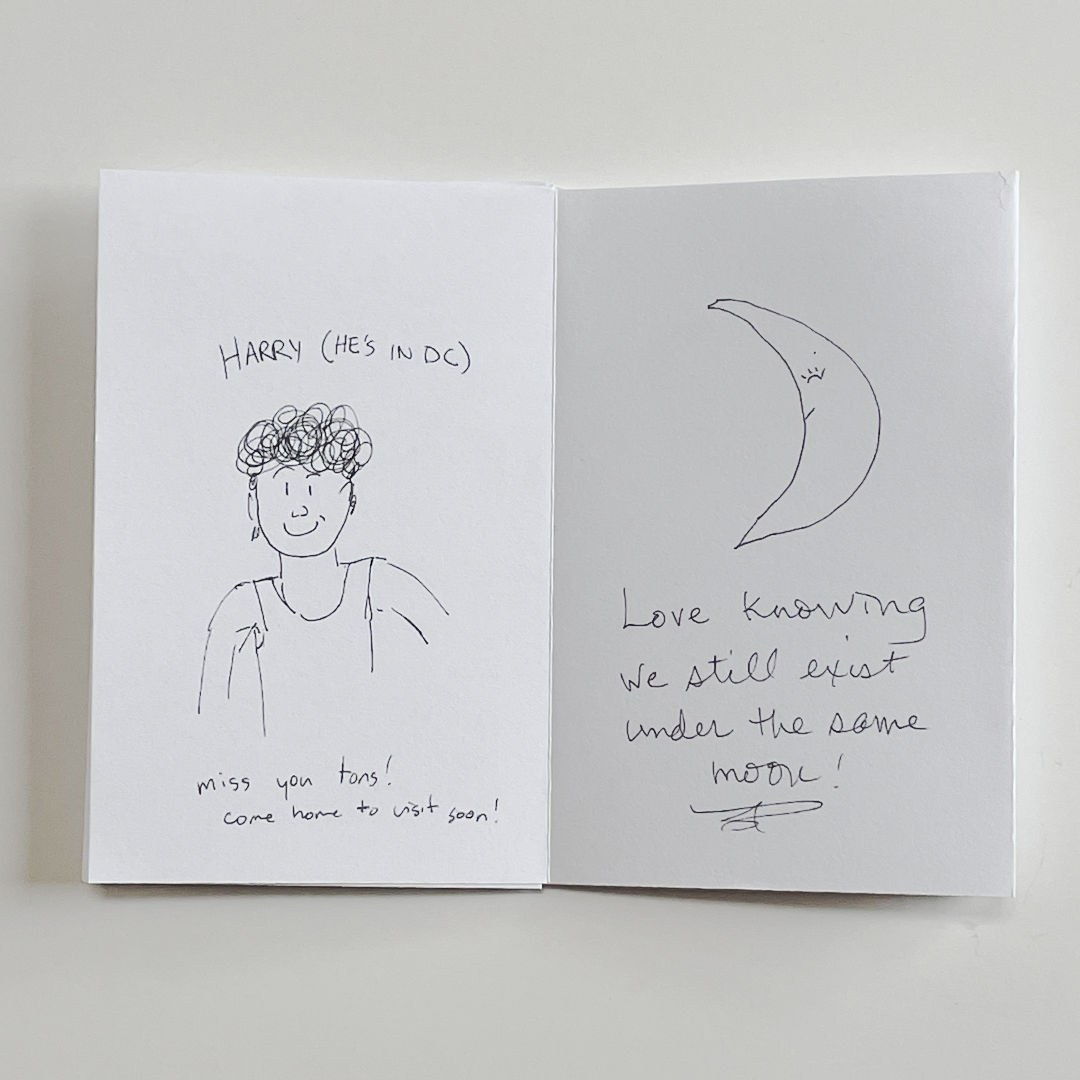 HARRY (HE'S IN DC)
miss you tons!
come home to visit soon!
Love knowing
we still exist
under the same
moon!